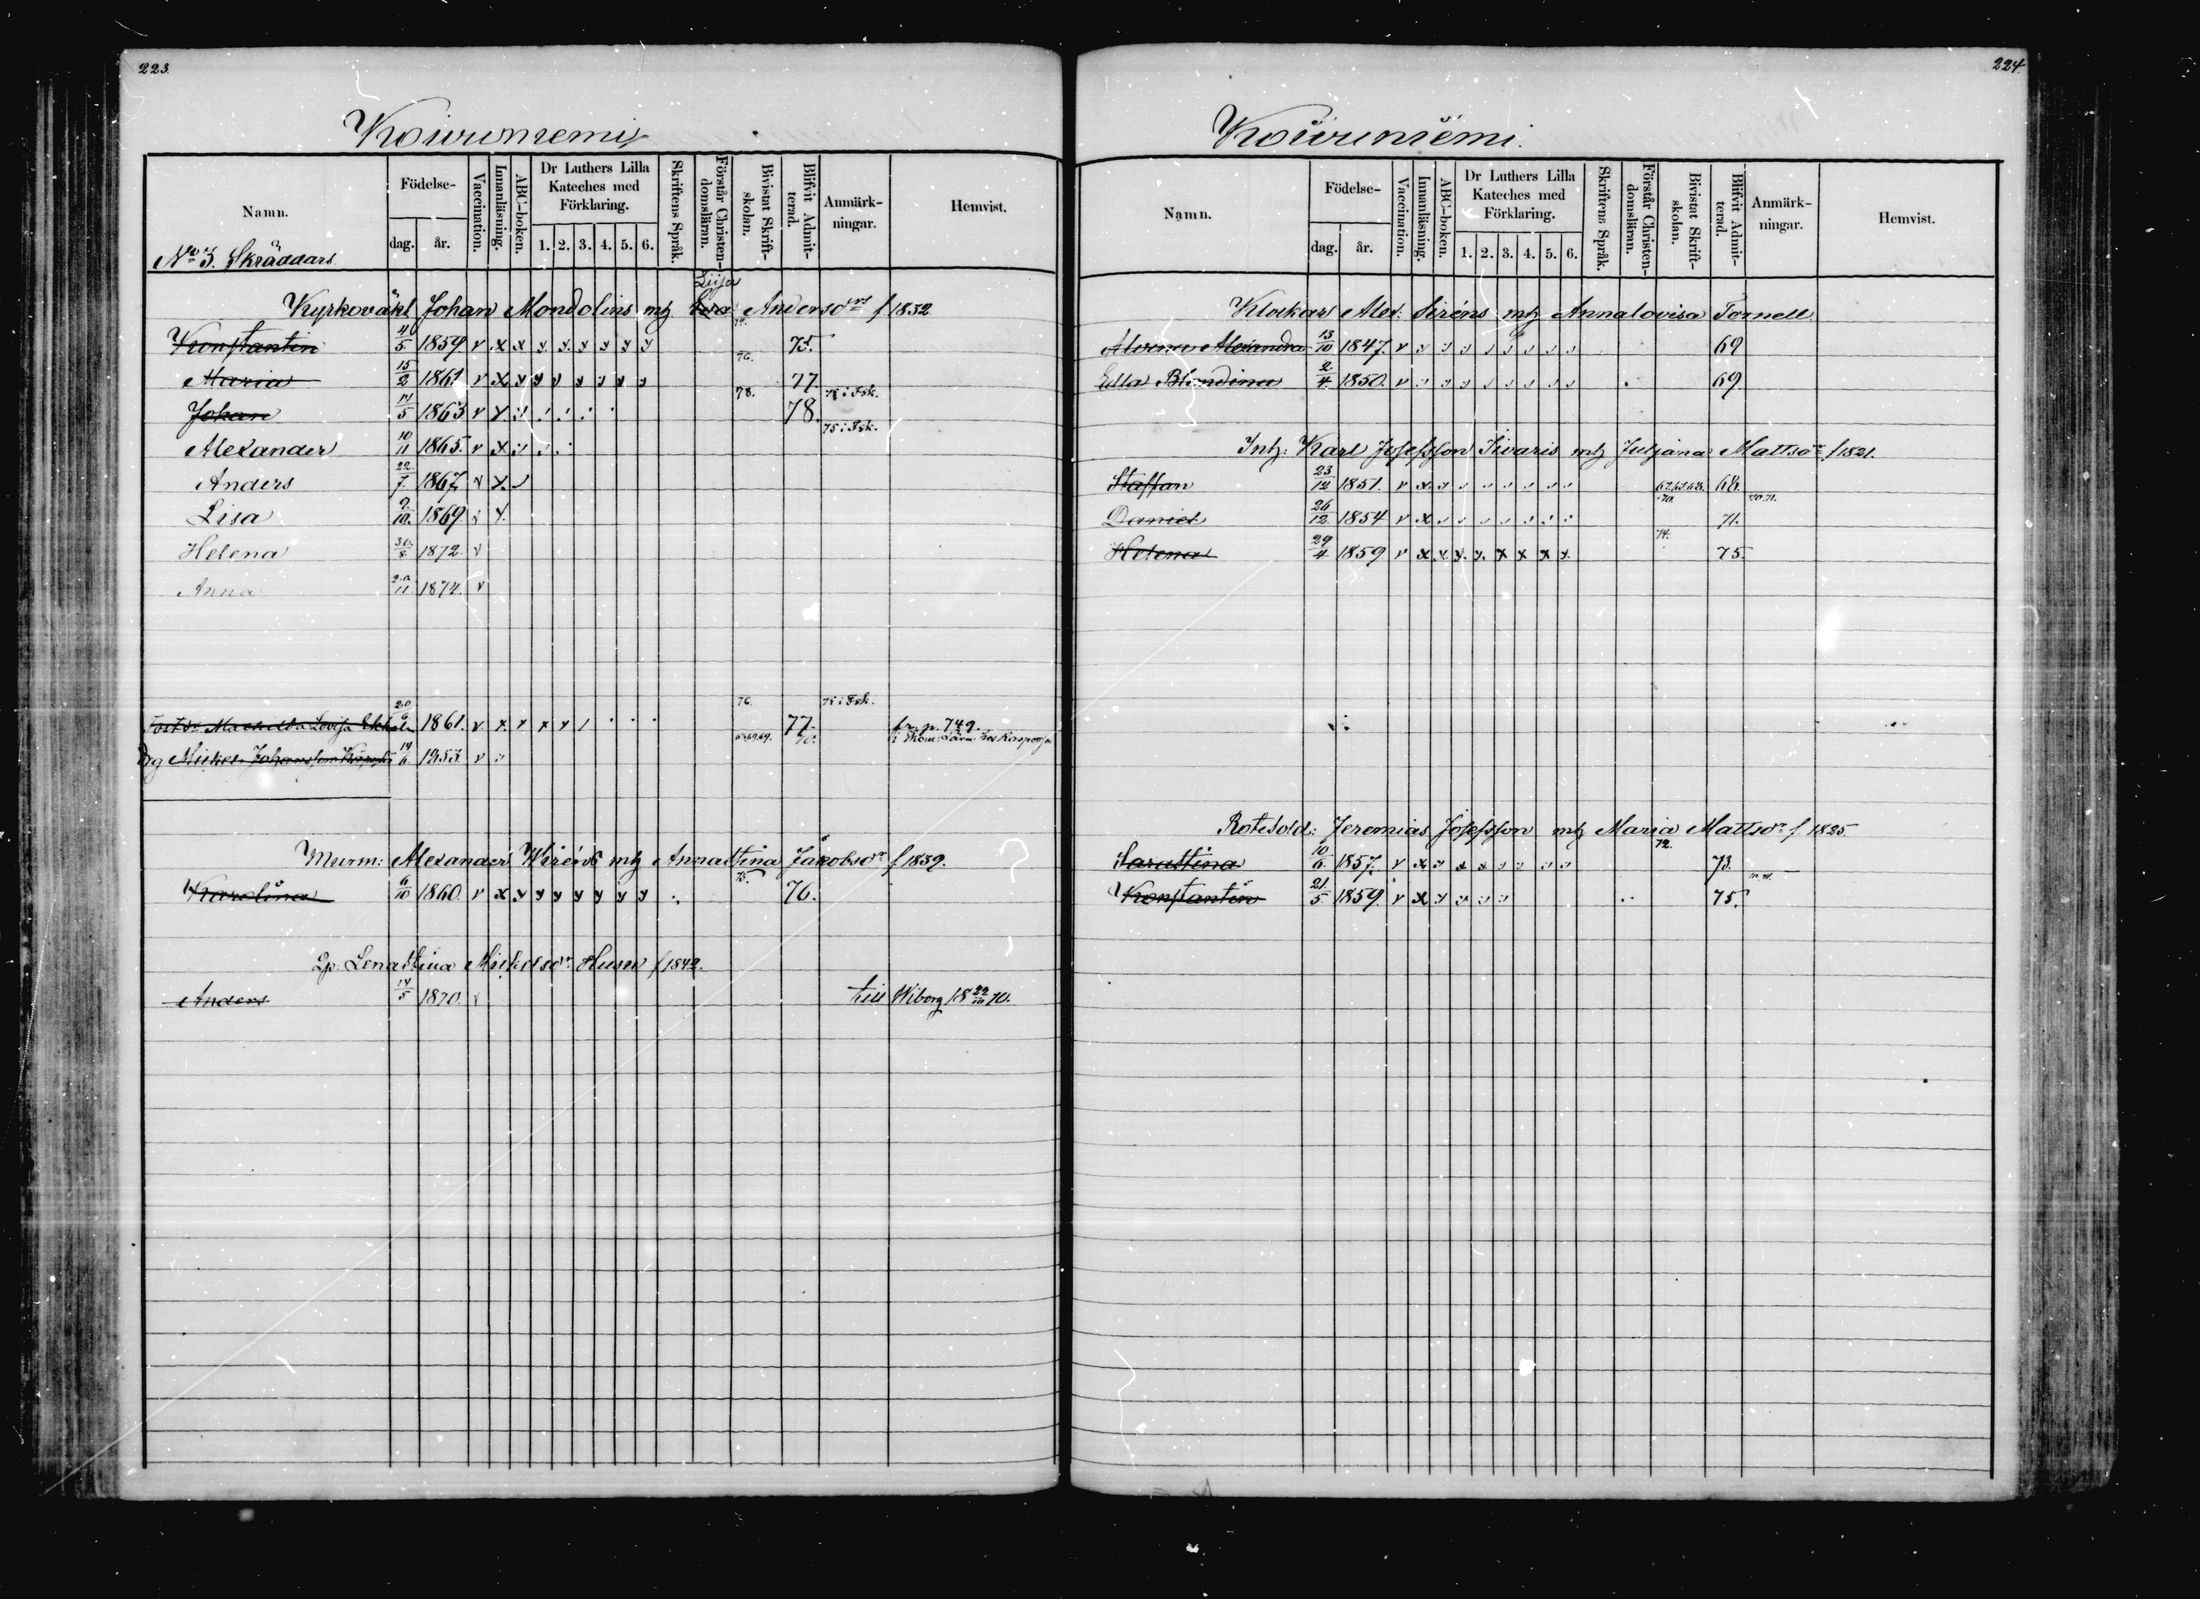 223.
Koivuniemi
Namn.
Födelse-
dag.
år.
Vaccination.
Innanläsning.
ABC-boken.
Dr Luthers Lilla
Kateches med
Förklaring.
1. 2. 3. 4. 5. 6.
Skriftens Språk.
Förstår Christen-
domsläran.
Bivistat Skrift-
skolan.
Blifvit Admit-
terad.
Anmärk-
ningar.
Hemvist.
No 3. Skräddars
Liisa
Kyrkovakt Johan Mondolins mh Andersdr f 1832
Konstantin 4/5 1859 v x x y y y y y y 75.
76.
Maria 15/2 1861 v x y y v y y y y 77.
78. 78 i Fsk.
Johan 14/5 1863 v x 78.
75 i Fsk.
Alexander 10/11 1865. v x
Anders 22/7 1867 v x
Lisa 9/10. 1869. v x
Helena 30/8 1872. v
Anna 1874. v
76. 75 i Fsk.
Mathilda Lovisa 20/9 1861. v x x x x 77. fr. p. 749.
Drg Mickel Johansson 14/6 1853. v 70.
Murm: Alexander Wiréns mh Annastina Jakobsdr f 1839.
75.
Karolina 6/10 1860. v x y y y y y y y 76.
Lp: Lenastina Mickelsdr Husu f 1842.
Anders 14/5 1870. v till Wiborg 18 22/10 70.
224
Koivuniemi.
Namn.
Födelse-
dag.
år.
Vaccination.
Innanläsning.
ABC-boken.
Dr Luthers Lilla
Kateches med
Förklaring.
1. 2. 3. 4. 5. 6.
Skriftens Språk.
Förstår Christen-
domsläran.
Bivistat Skrift-
skolan.
Blifvit Admit-
terad.
Anmärk-
ningar.
Hemvist.
Klockars Alex. Siréns mh Annalovisa Tornell.
Alexandra 13/10 1847. v 69
Edla Blondina 2/4. 1850. v 69.
Inh: Karl Josefsson Sivaris mh Juljana Mattsdr f 1821.
Staffan 23/12 1851. v x 68.
70. 70.71.
Daniel 26/12. 1854 v x 71.
74.
Helena 29/4 1859 v x x y. y. x x x y. 75.
Rotesold: Jeremias Josefsson mh Maria Mattsdr f. 1825
72.
Sarastina 10/6. 1857. v x 73.
Konstantin 21/5. 1859. v x 75.